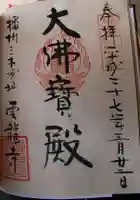 奉拝 平成二十七年三月廿二日
大佛寶殿
播州三木城址
雲龍寺